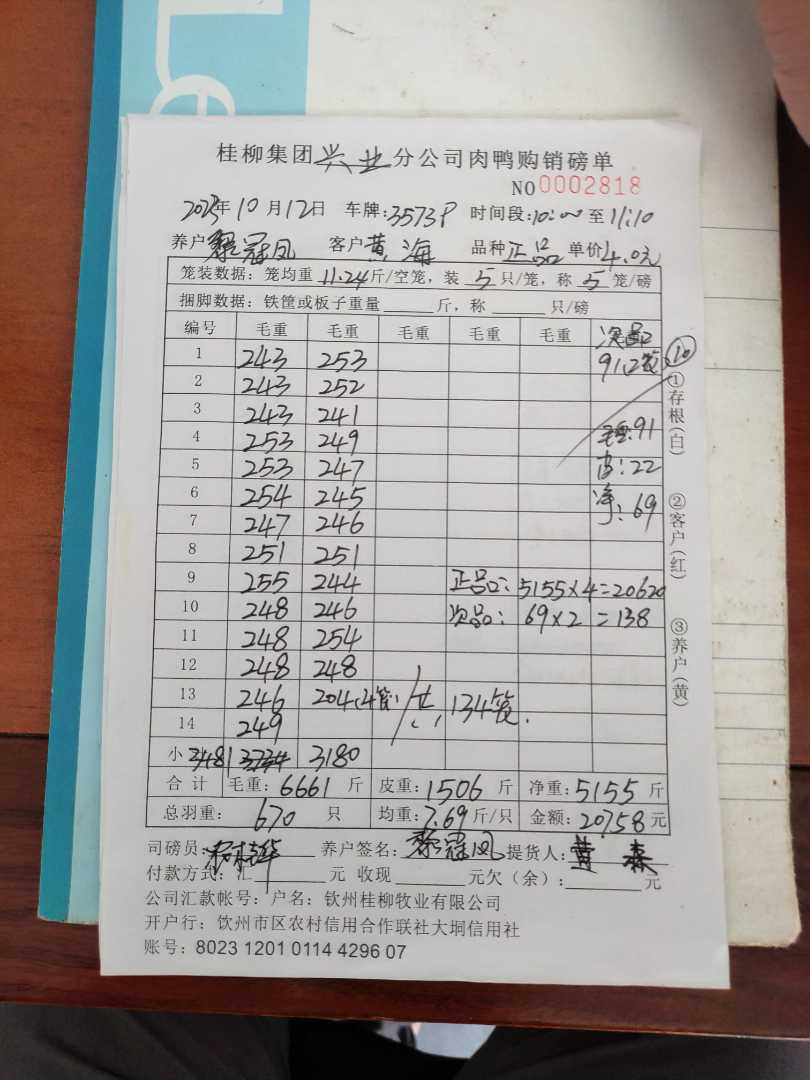 Le
桂柳集团兴业分公司肉鸭购销磅单
NO 0002818
2023年10月12日 车牌:3573P 时间段:10:00至11:10
养户 黎冠凤 客户 黄海 品种 正品 单价 4.0元
笼装数据: 笼均重 11.24斤/空笼, 装 5 只/笼, 称 5 笼/磅
捆脚数据: 铁筐或板子重量 斤, 称 只/磅
编号 毛重 毛重 毛重 毛重 毛重 次品
1 243 253 91.2笼 10
2 243 252
3 243 241
4 253 249 毛重:91
5 253 247 皮:22
6 254 245 净:69
7 247 246
8 251 251
9 255 244 正品:5155×4=20620
10 248 246 次品:69×2=138
11 248 254
12 248 248
13 246 204(4笼) 共134笼.
14 249
小 3481 3180
合计 毛重:6661斤 皮重:1506斤 净重:5155斤
总羽重: 670 只 均重:7.69斤/只 金额:20758元
司磅员: 养户签名:黎冠凤 提货人:黄森
付款方式:汇 元 收现 元欠(余): 元
公司汇款帐号:户名:钦州桂柳牧业有限公司
开户行:饮州市区农村信用合作联社大垌信用社
账号:8023 1201 0114 4296 07
①存根(白) ②客户(红) ③养户(黄)